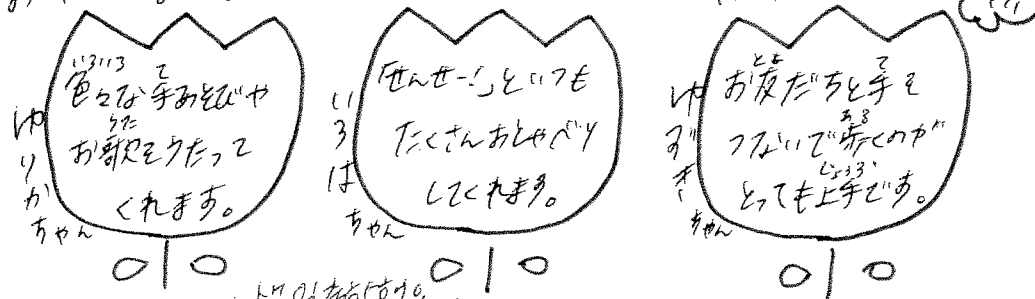 ゆりかちゃん
色々な手あそびや
お歌をうたって
くれます。
いろはちゃん
「せんせー!」といつも
たくさんおしゃべり
してくれます。
ゆずきちゃん
お友だちと手を
つないで歩くのが
とっても上手です。